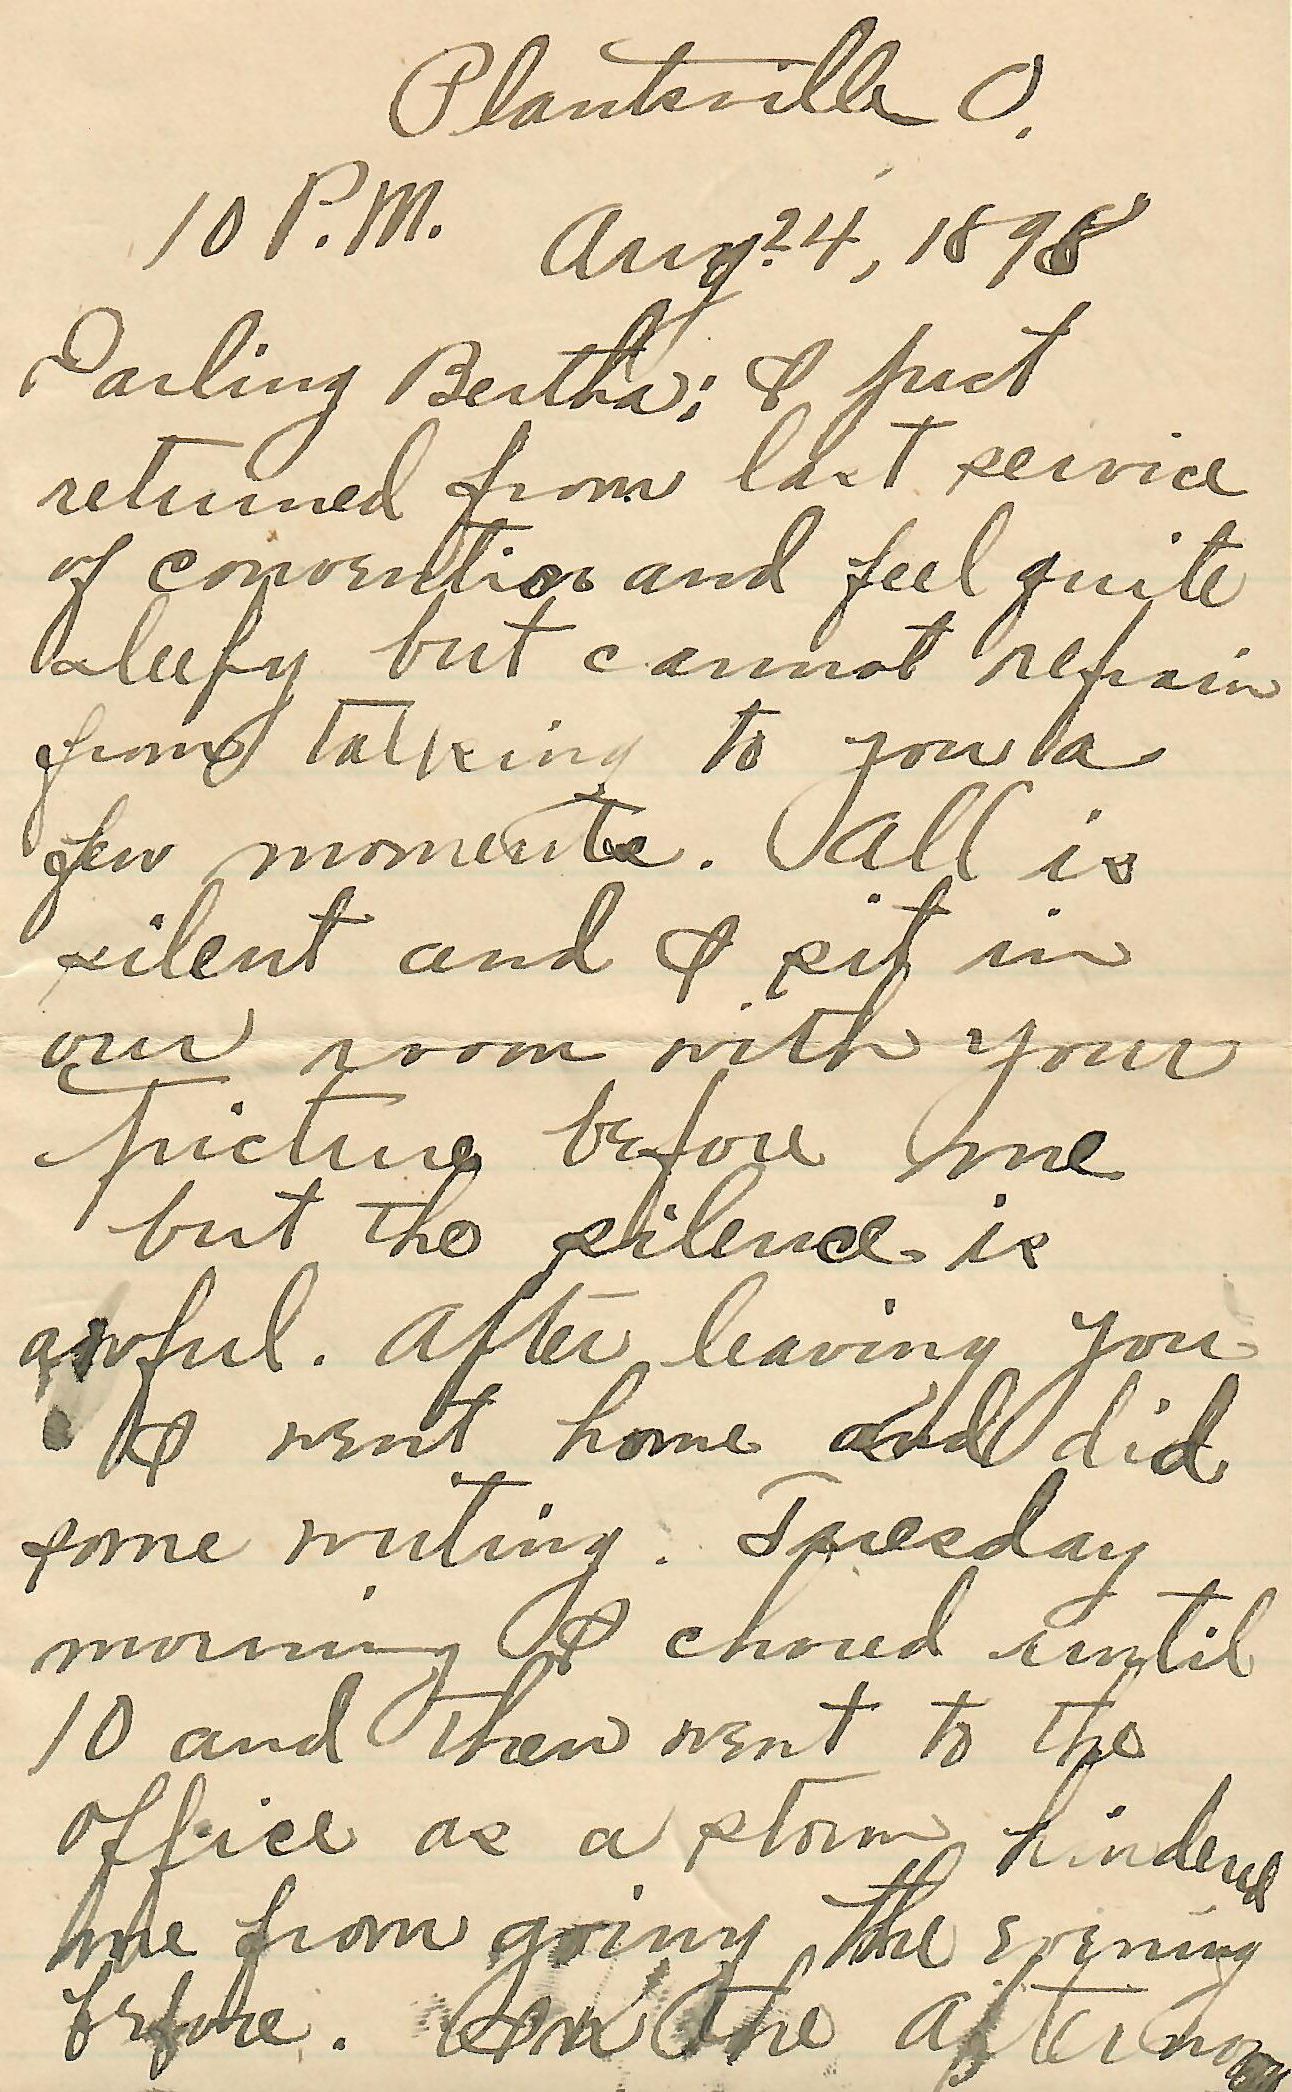 Plantsville O.
10 P.M. Aug. 24, 1898
Darling Bertha; I just
returned from last service
of convention and feel quite
sleepy but cannot refrain
from talking to you a
few moments. All is
silent and I sit in
our room with your
picture before me
but the silence is
awful. After leaving you
I went home and did
some writing. Tuesday
morning I chored until
10 and then went to the
office as a storm hindered
me from going the evening
before. In the afternoon